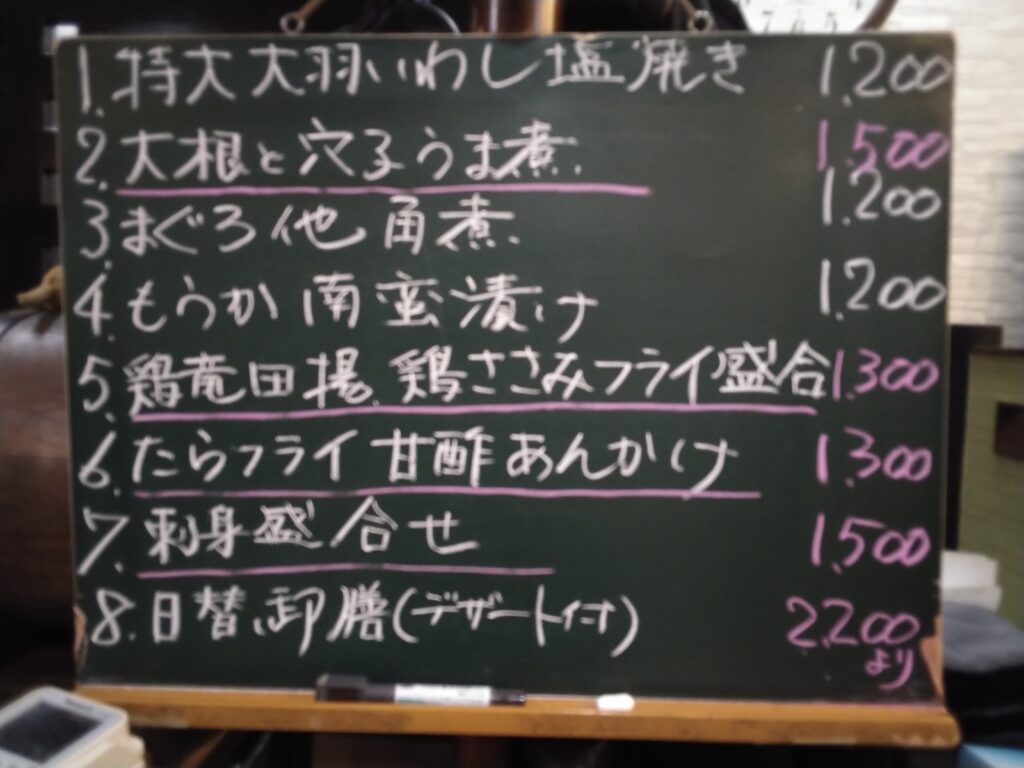 7 6 5
1. 特大大羽いわし塩焼き 1,200
2. 大根と穴子うま煮 1,500
3. まぐろ他角煮 1,200
4. もうか南蛮漬け 1,200
5. 鶏竜田揚、鶏ささみフライ盛合 1,300
6. たらフライ甘酢あんかけ 1,300
7. 刺身盛合せ 1,500
8. 日替、御膳(デザート付) 2,200
より